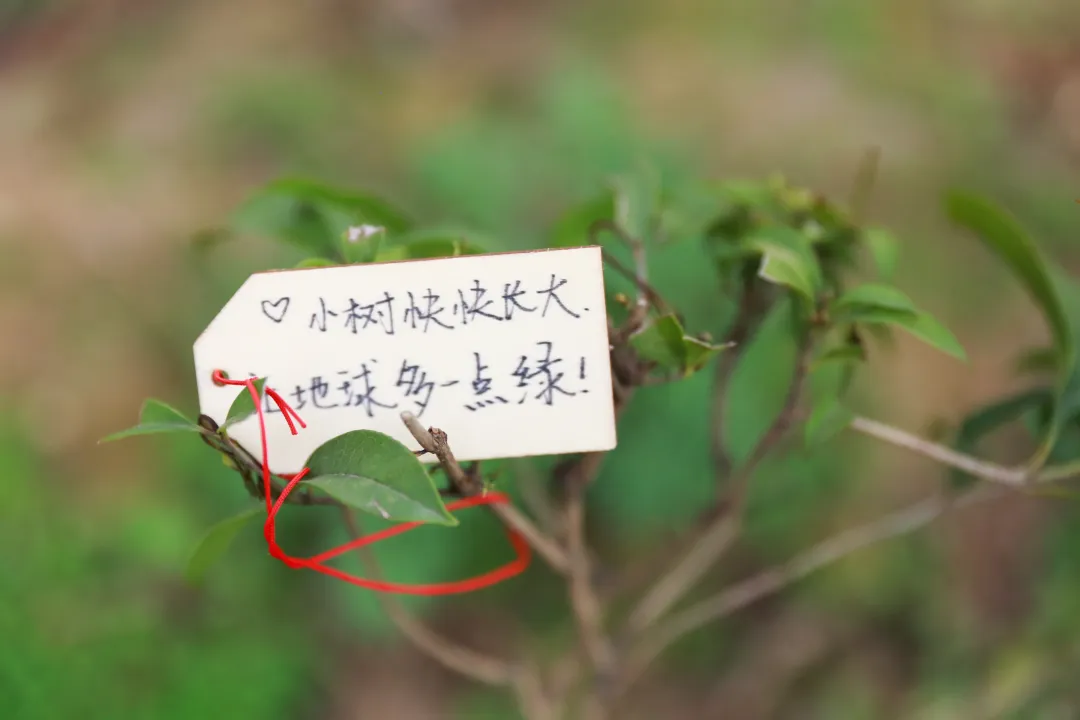 ♡ 小树快快长大.
地球多一点绿!